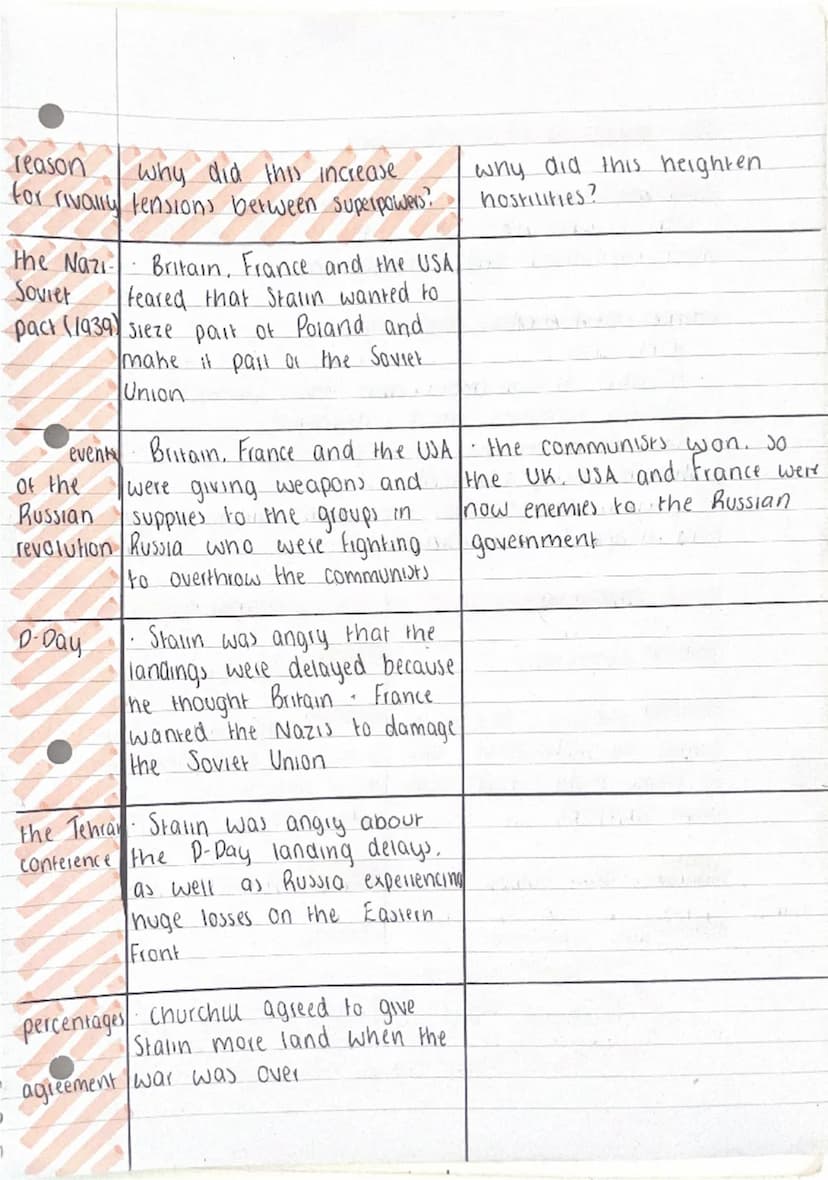 reason
for rivalry
why did this increase
tensions between superpowers?
why did this heighten
hostilities?
the Nazi-
Soviet
pact (1939)
· Britain, France and the USA
feared that Stalin wanted to
sieze part of Poland and
make it part of the Soviet
Union
events
of the
Russian
revolution
· Britain, France and the USA
were giving weapons and
supplies to the groups in
Russia who were fighting
to overthrow the communists
· the communists won, so
the UK, USA and France were
now enemies to the Russian
government
D-Day
· Stalin was angry that the
landings were delayed because
he thought Britain + France
wanted the Nazis to damage
the Soviet Union
the Tehran
conference
· Stalin was angry about
the D-Day landing delays,
as well as Russia experiencing
huge losses on the Eastern
Front
percentages
agreement
· Churchill agreed to give
Stalin more land when the
war was over